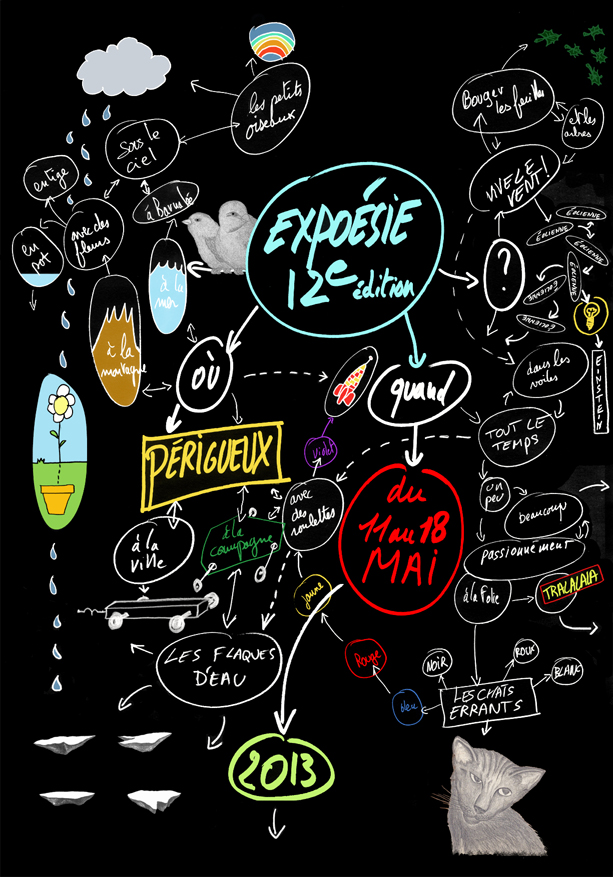 les petits
oiseaux
Bouger
les feuilles
et les
arbres
Sous le
ciel
VIVE LE
VENT!
en tige
avec des
fleurs
en pot
à la
mer
EXPOÉSIE
12e édition
?
ÉOLIENNE
ÉOLIENNE
ÉOLIENNE
ÉOLIENNE
ÉOLIENNE
ÉOLIENNE
ÉOLIENNE
EINSTEIN
à la
montagne
où
quand
dans les
voiles
TOUT LE
TEMPS
PÉRIGUEUX
violet
du
11 au 18
MAI
un
peu
beaucoup
avec
des
roulettes
à la
ville
à la
campagne
passionnément
à la Folie
TRALALALA
jaune
Rouge
bleu
LES FLAQUES
D'EAU
NOIR
ROUX
BLANK
LES CHATS
ERRANTS
2013